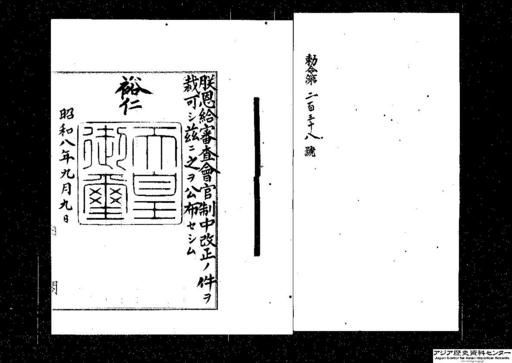 勅令第二百三十八號
朕恩給審査會官制中改正ノ件ヲ
裁可シ茲ニ之ヲ公布セシム
裕仁
天皇
御璽
昭和八年九月九日
アジア歴史資料センター
Japan Center for Asian Historical Records